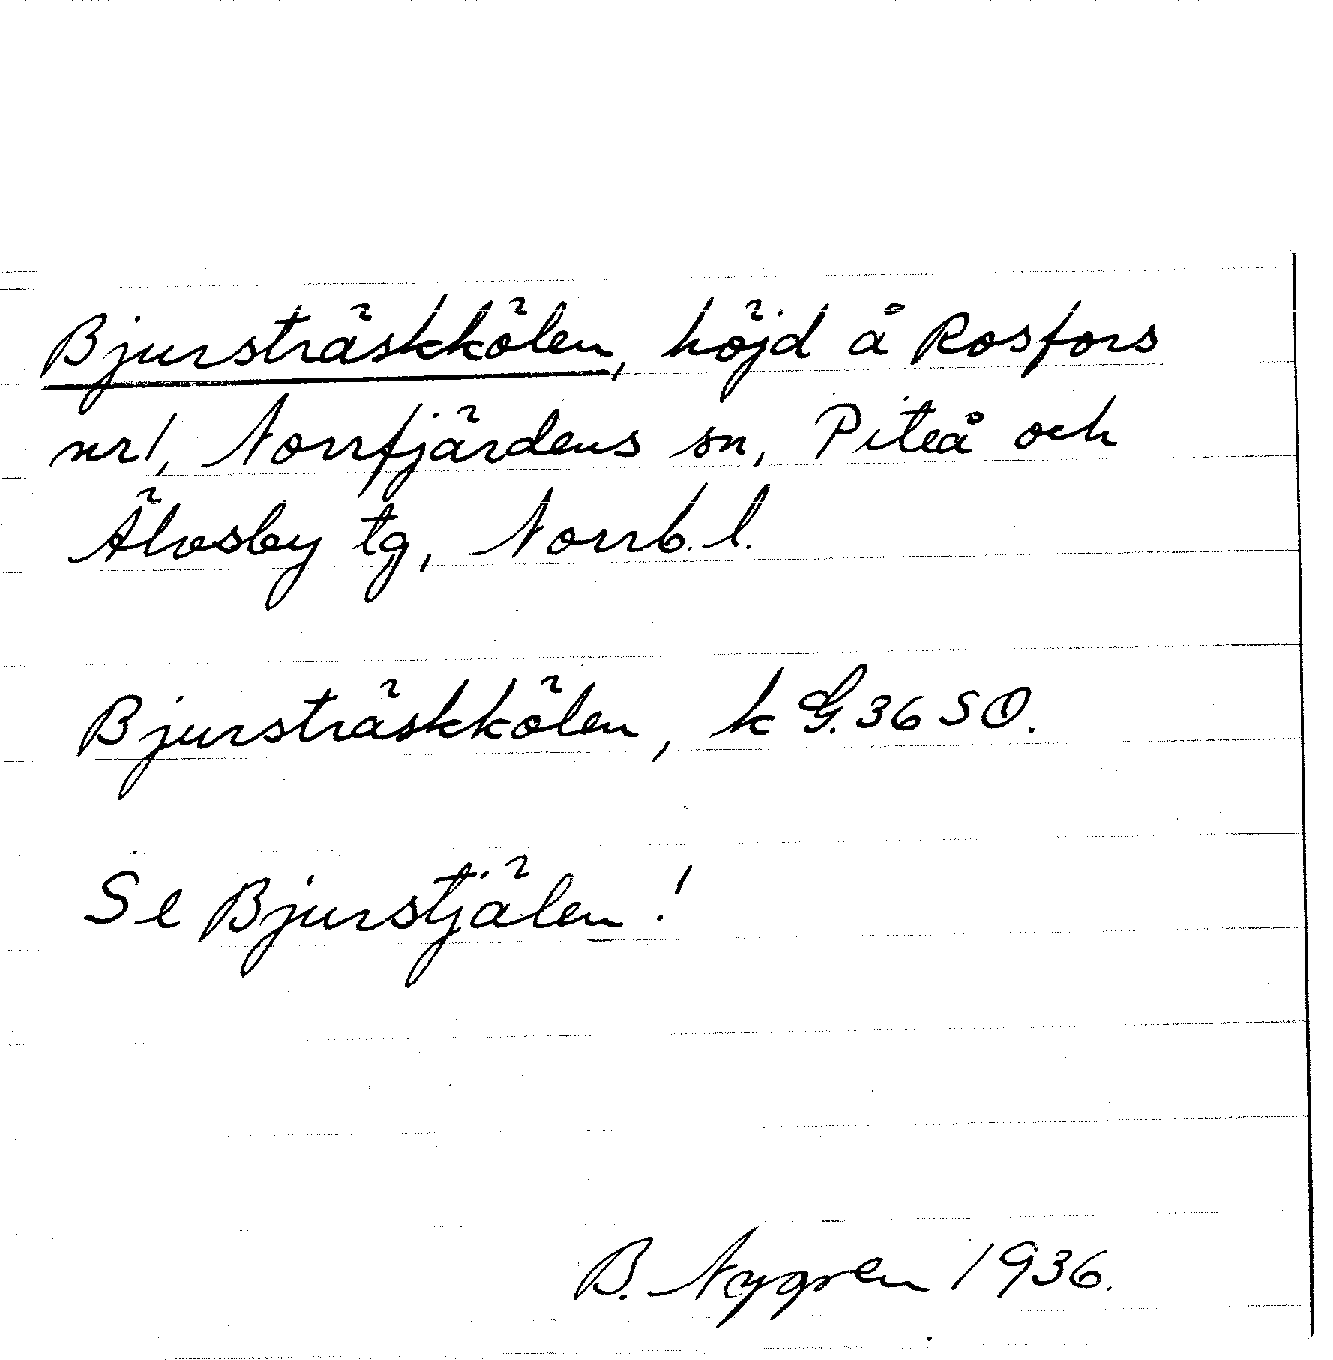 Bjursträskkölen, höjd å Rosfors
nr 1, Norrfjärdens sn, Piteå och
Älvsby tg, Norrb. l.
Bjursträskkölen, k G. 36 SO.
Se Bjurstjälen!
B. Nygren 1936.